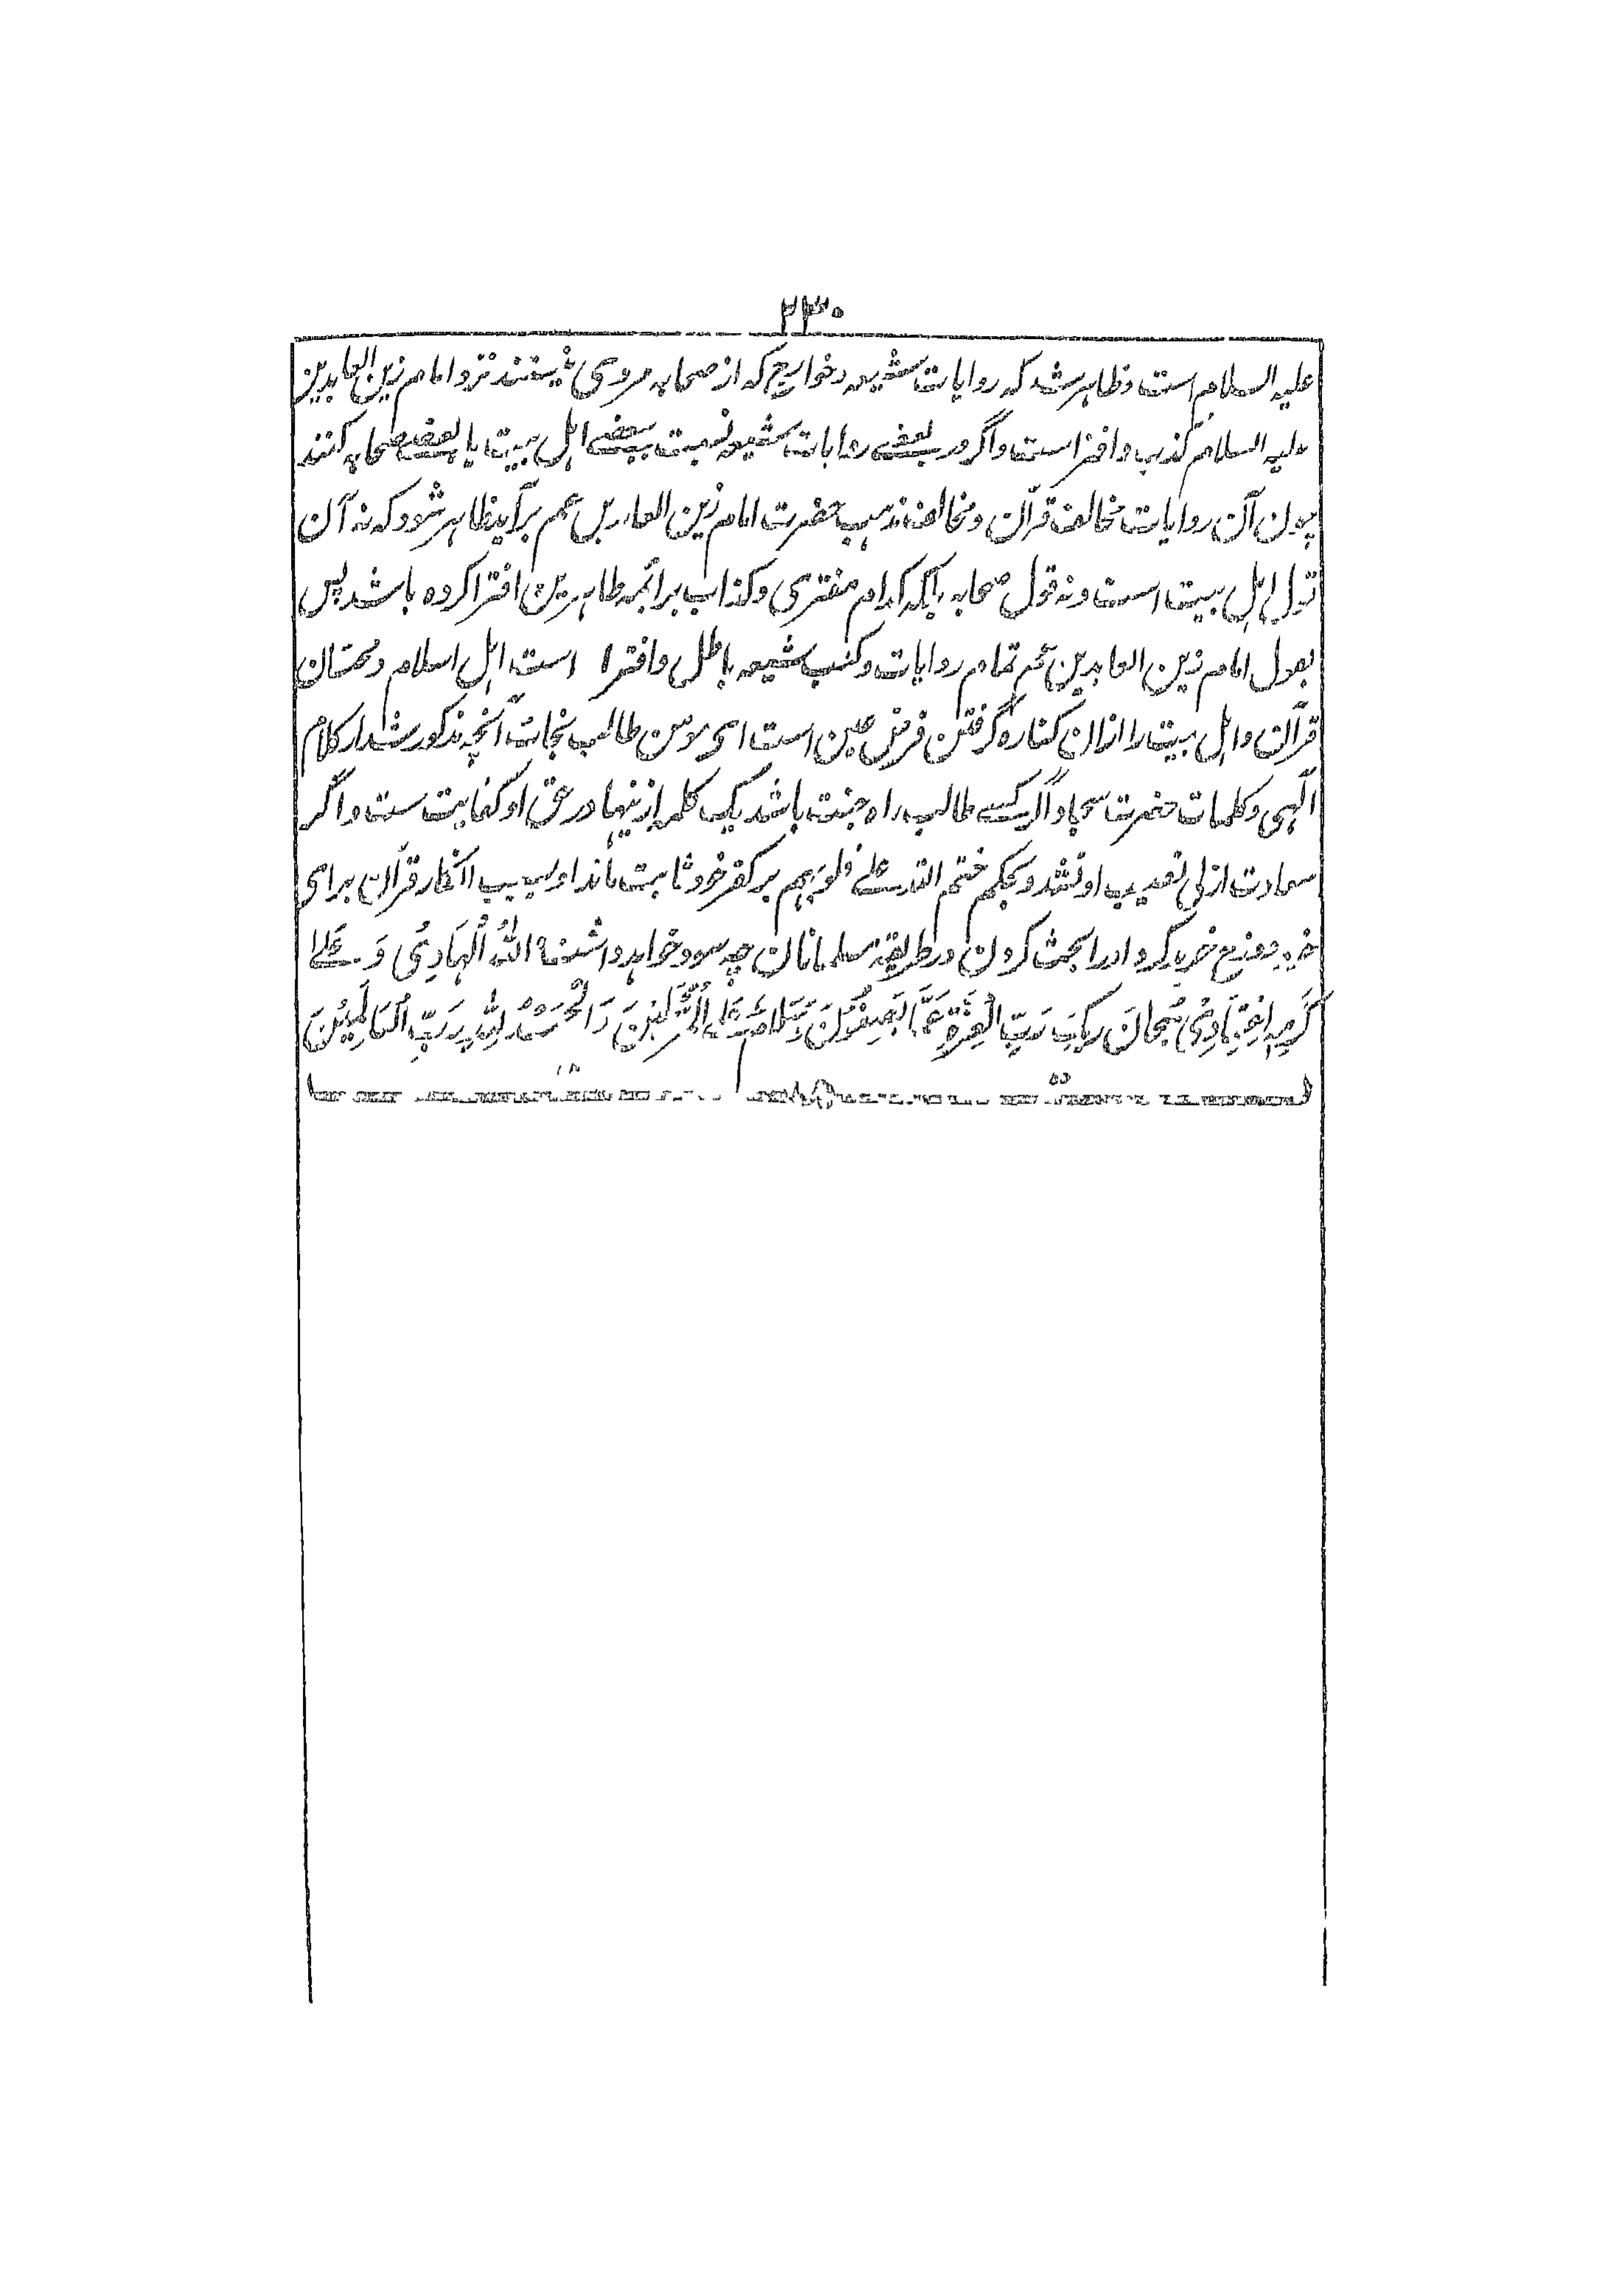 ۲۳۰
علیه السلام است و ظاهر شد که روایات شیعه و خوارج که از صحابه مروی نیستند نزد امام زین العابدین
علیه السلام کذب و افترا است و اگر در بعضے روایات شیعه نسبت ببعضے اهل بیت یا بعضے صحابه کنند
چون آن روایات مخالف قرآن و مخالف مذهب حضرت امام زین العابدین عم برآید ظاهر شود که نه آن
قول اهل بیت است و نه قول صحابه بلکه کدام مفتری و کذاب بر ائمه طاهرین افترا کرده باشد پس
بقول امام زین العابدین عم تمام روایات و کتب شیعه باطل و افترا است اهل اسلام و محبان
قرآن و اهل بیت را ازان کناره گرفتن فرض عین است ای مومن طالب نجات آنچه مذکور شد از کلام
الٓهی و کلمات حضرت سجاد اگر کسے طالب راه جنت باشد یک کلمه ازینها در حق او کفایت ست و اگر
سعادت ازلی نصیب او نشد و بحکم ختم الله علے قلوبهم بر کفر خود ثابت ماند او بسبب انکار قرآن برای
خود دوزخ خرید کرد او را بحث کردن در طریقه مسلمانان چه سود خواهد داشت اَللهُ الْهَادِیْ وَ عَلےٰ
کَرَمِهِ اعْتِمَادِیْ سُبْحَانَ رَبِّکَ رَبِّ الْعِزَّةِ عَمَّا یَصِفُوْنَ وَسَلَامٌ عَلَی الْمُرْسَلِیْنَ وَالْحَمْدُ لِلّٰهِ رَبِّ الْعَالَمِیْنَ